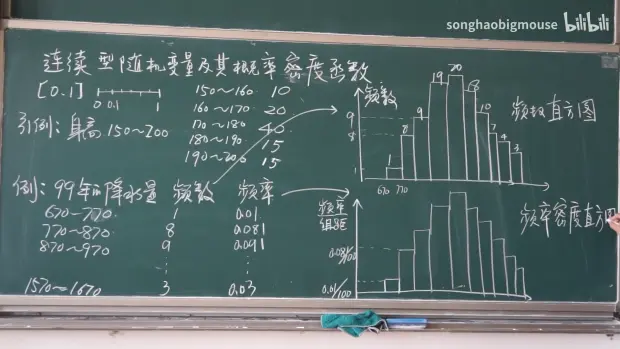 songhaobigmouse bilibili
连续型随机变量及其概率密度函数
[0.1] 0 0.1 1
引例: 身高 150~200
150~160 10
160~170 20
170~180 40
180~190 15
190~200 15
例: 99年的降水量 频数 频率
670~770 1 0.01
770~870 8 0.081
870~970 9 0.091
⋮ ⋮
1570~1670 3 0.03
频数
9
8
1
1 8 9 19 20 18 10 7 4 3
670 770
频数直方图
频率
组距
0.081/100
0.01/100
频率密度直方图